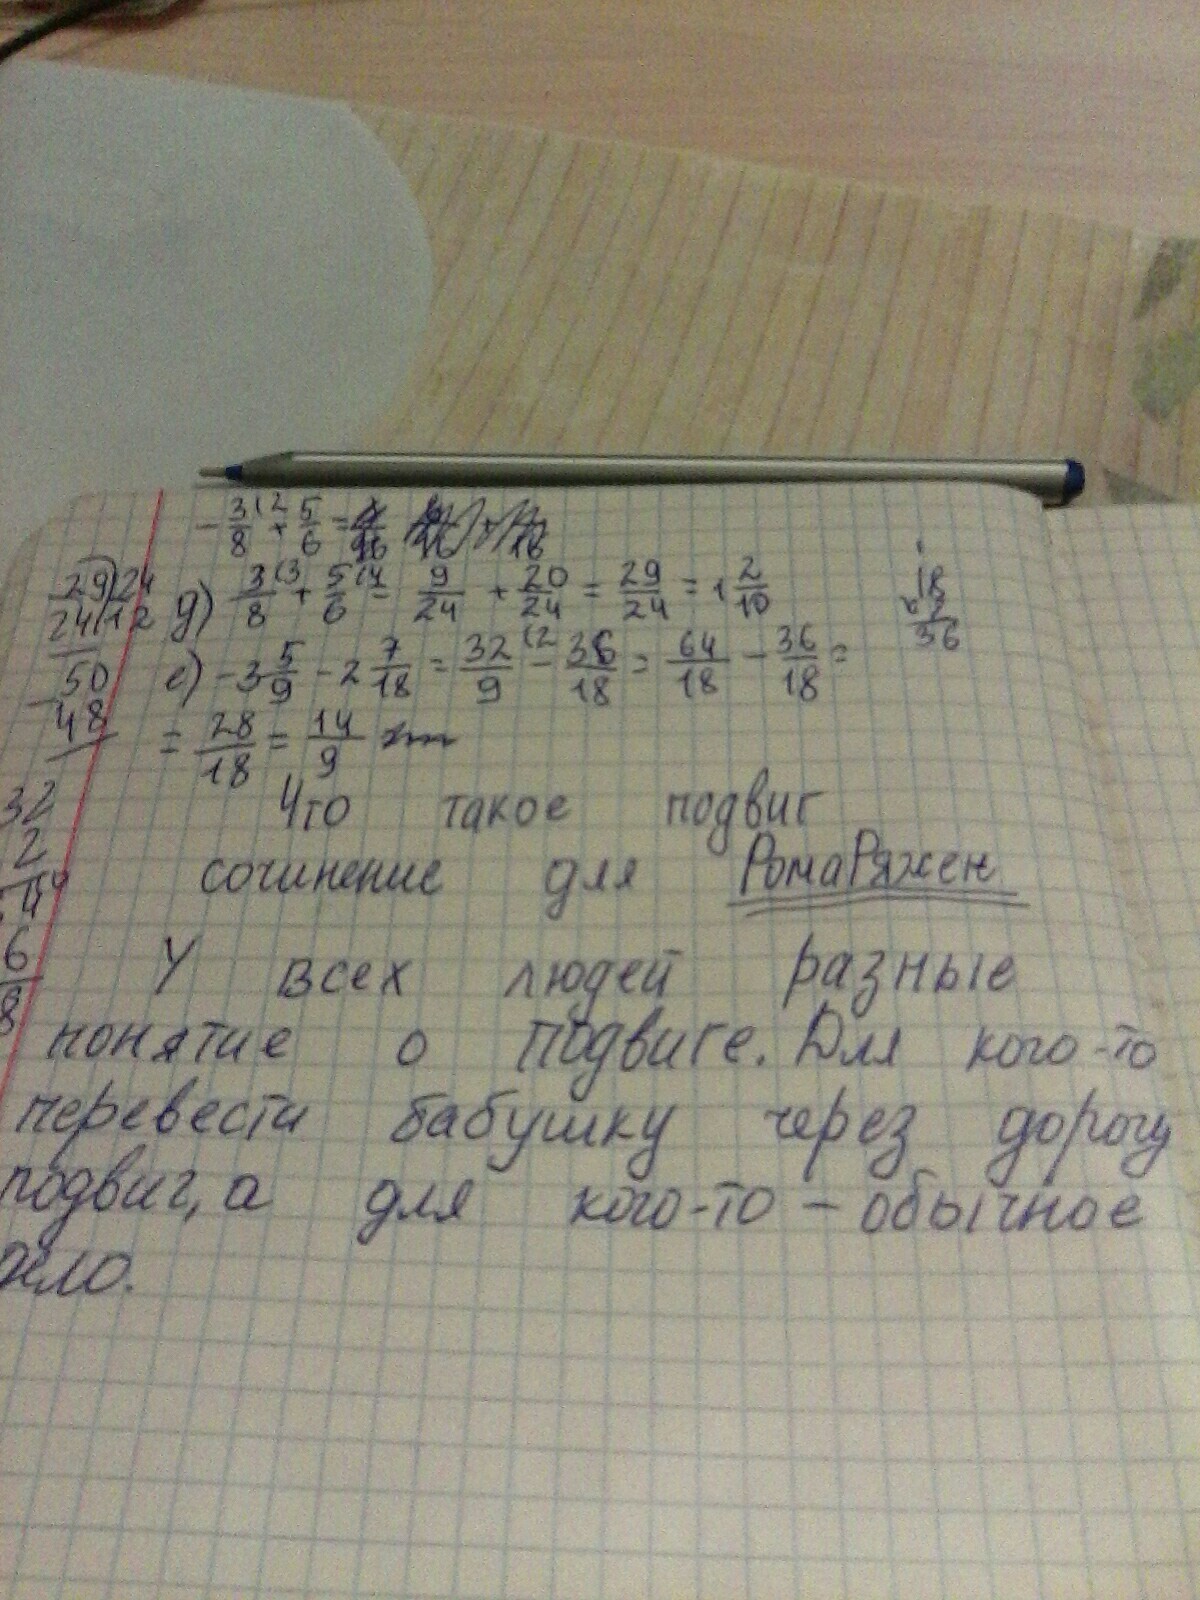 - 3/8 (2 + 5/6 =
29 | 24
24 | 1 2
50
48
д) 3/8 (3 + 5/6 (4 = 9/24 + 20/24 = 29/24 = 1 2/10
18
2
36
е) -3 5/9 - 2 7/18 = 32/9 (2 - 36/18 = 64/18 - 36/18 =
= 28/18 = 14/9
32
2
Что такое подвиг
сочинение для РомаРяжен
У всех людей разные
понятие о подвиге. Для кого-то
перевести бабушку через дорогу
подвиг, а для кого-то - обычное
дело.